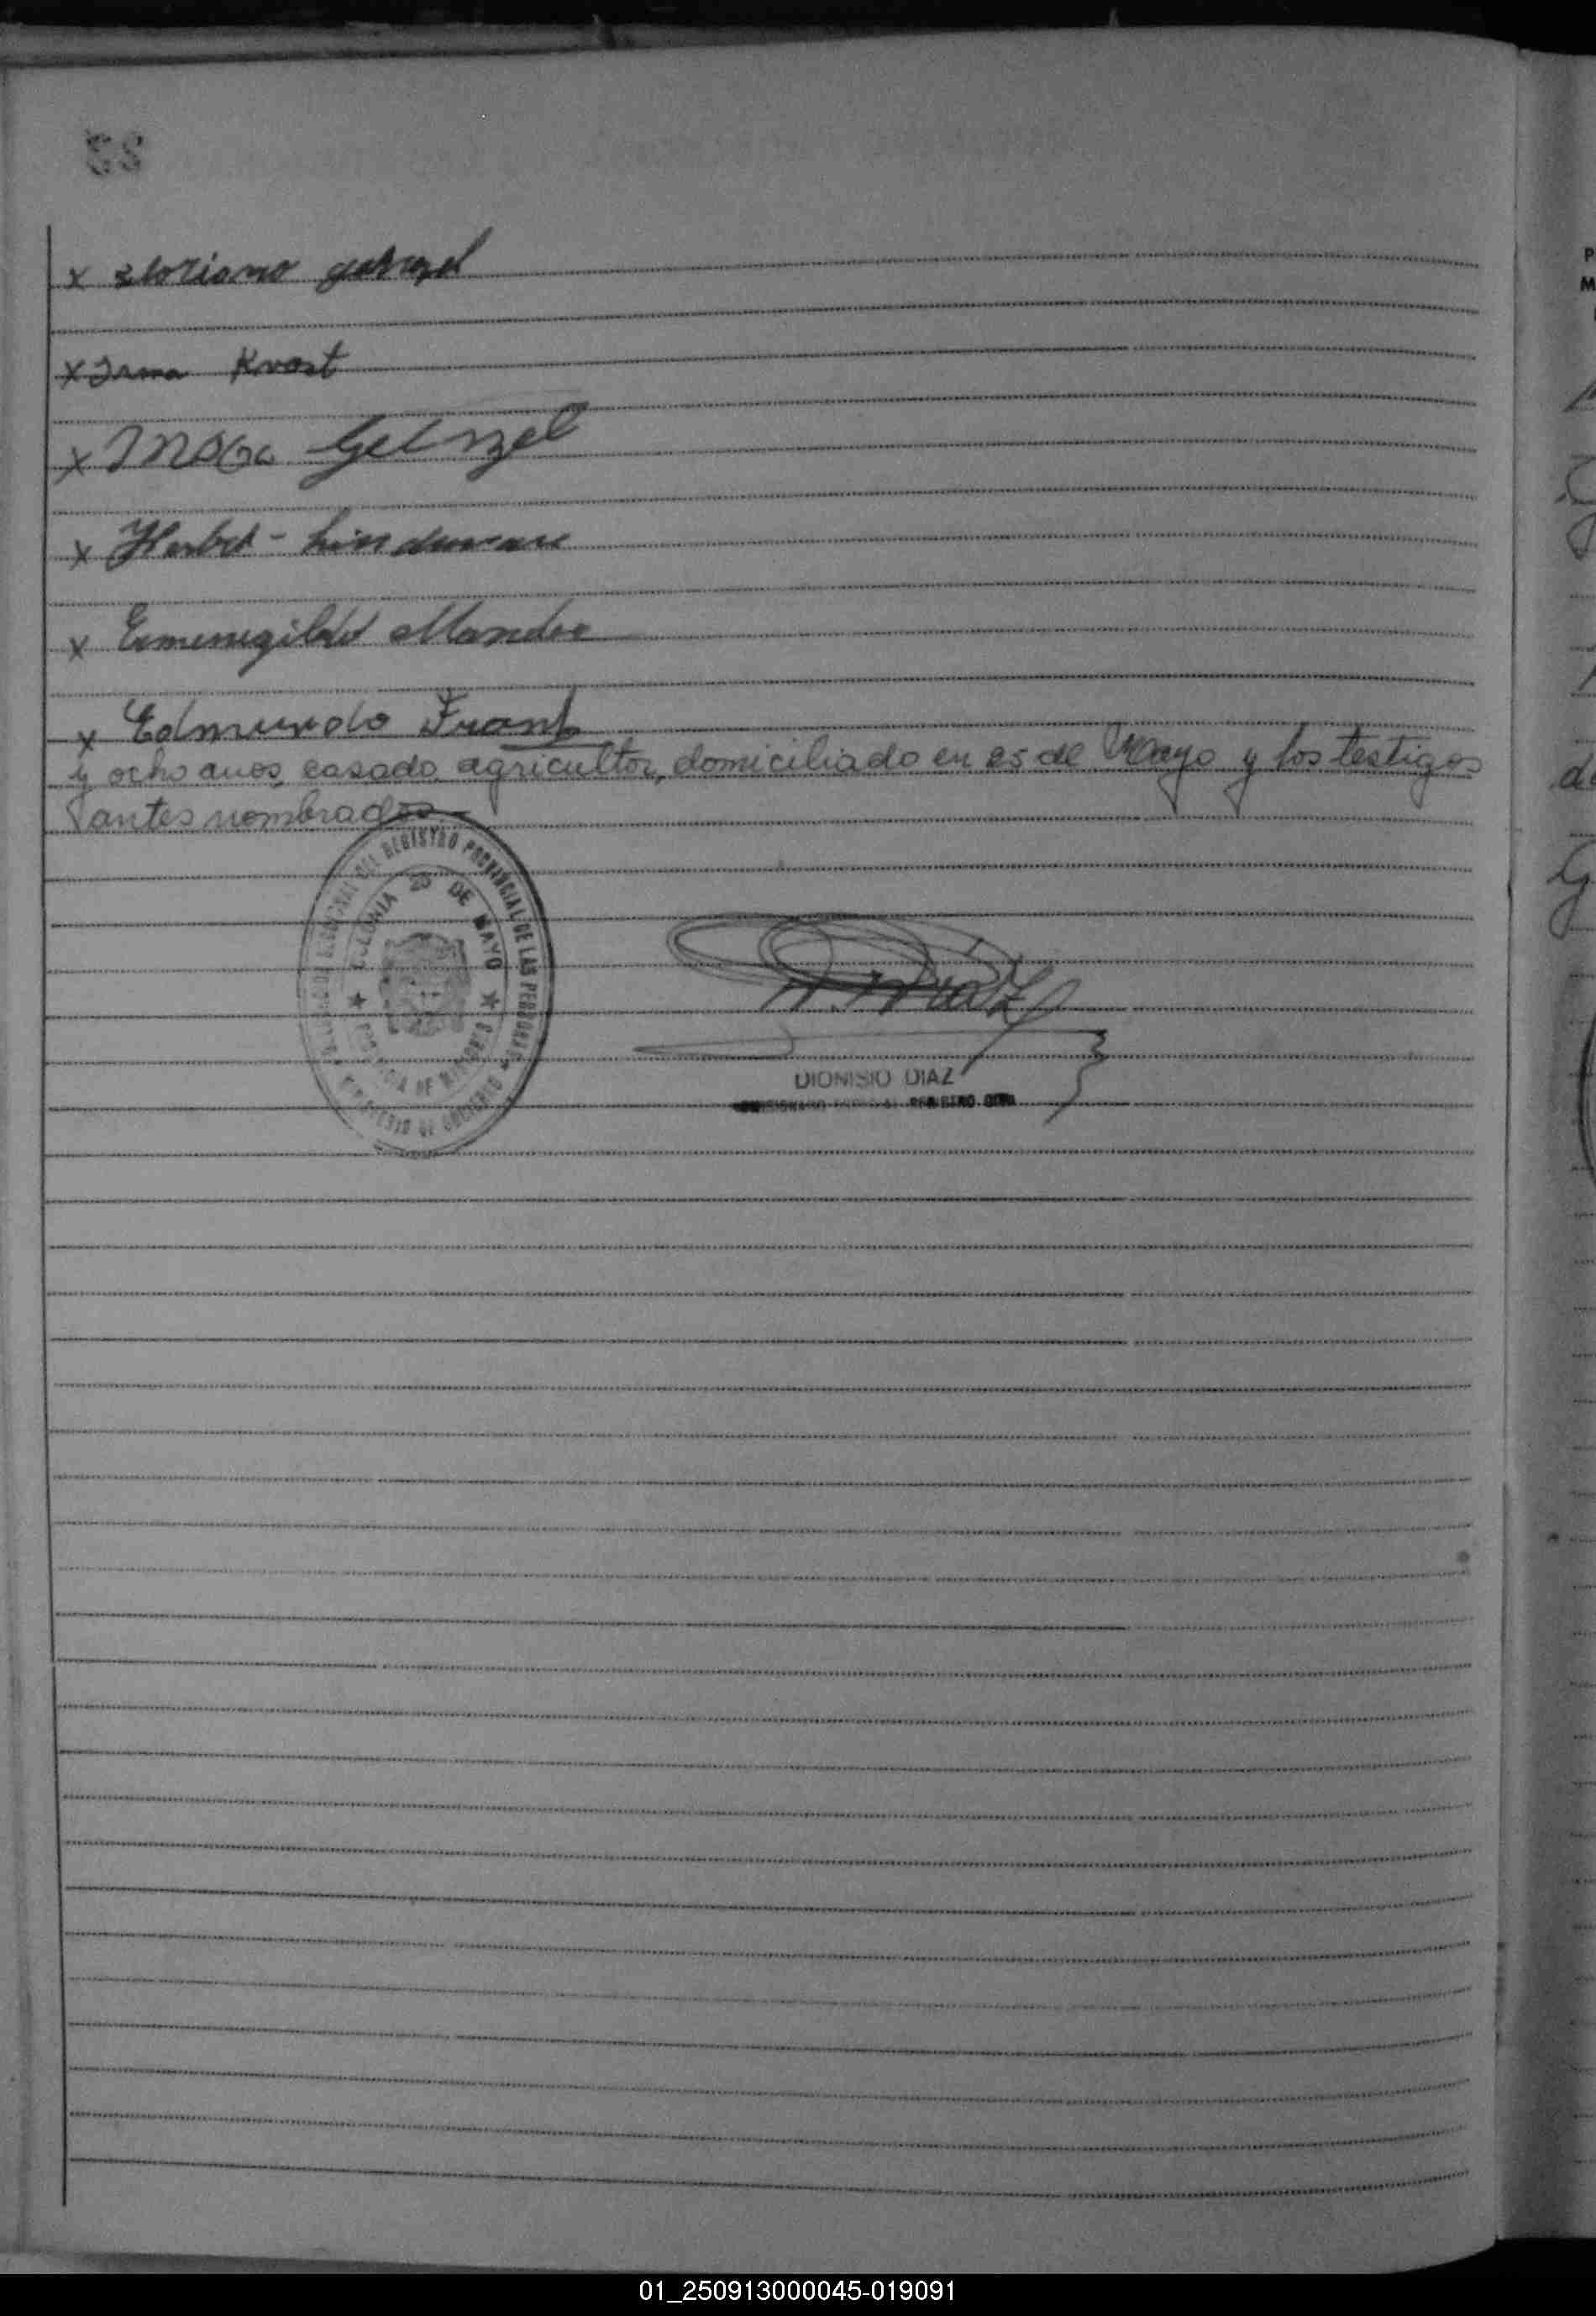 x Floriano Getzel
x Irma Kvast
x Getzel
x Lindemann
x Ermenegildo
x Edmundo Frank
y ocho años, casado, agricultor, domiciliado en 25 de Mayo y los testigos
antes nombrados.
DEL REGISTRO PROVINCIAL DE LAS PERSONAS
COLONIA 25 DE MAYO
DE MISIONES
DIONISIO DIAZ
REGISTRO CIVIL
01_250913000045-019091